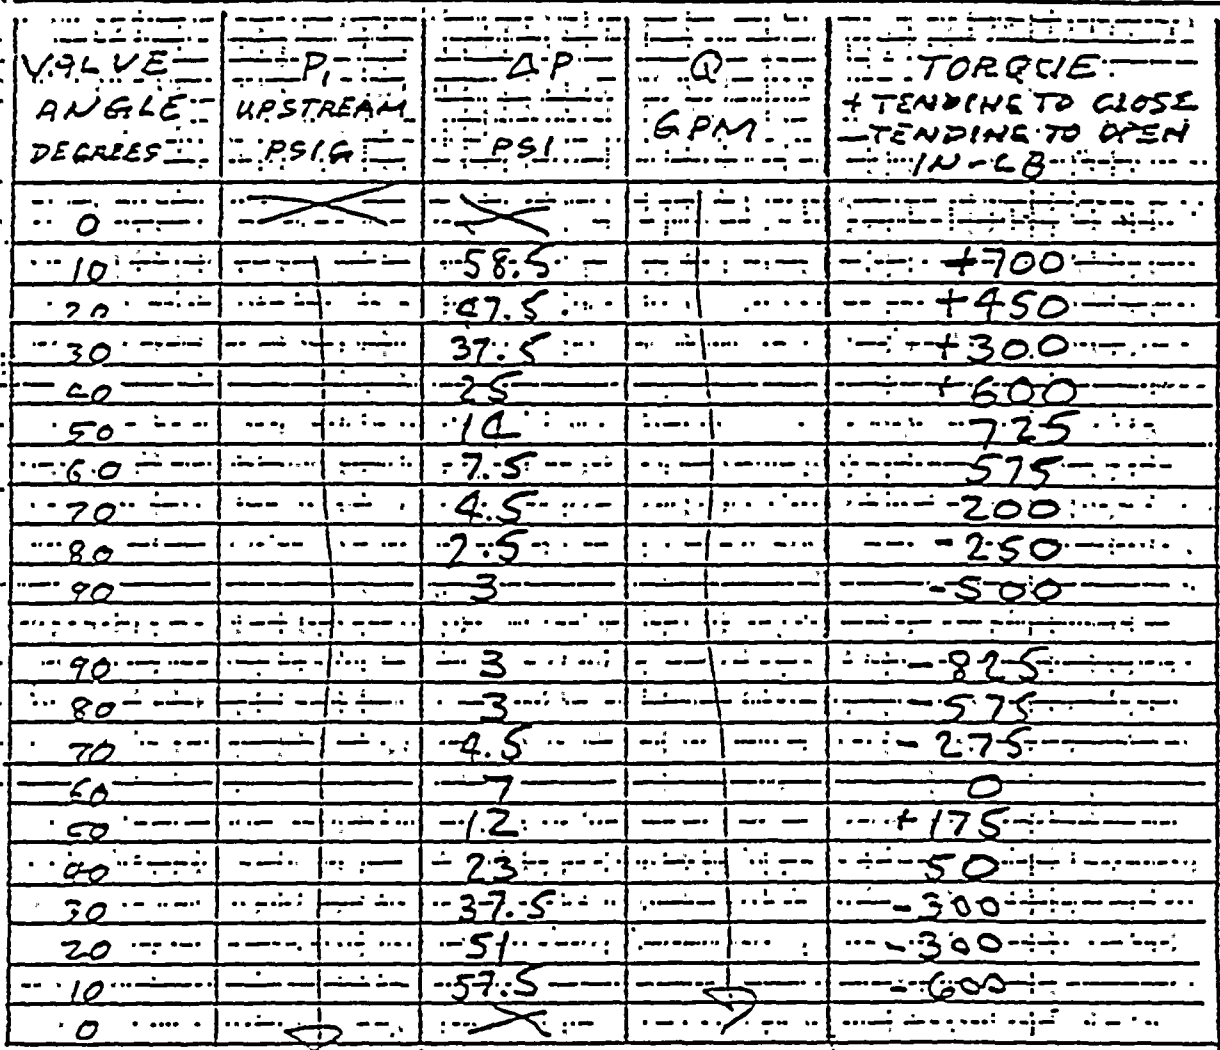 VALVE ANGLE DEGREES P₁ UPSTREAM PSIG ΔP PSI Q GPM TORQUE + TENDING TO CLOSE - TENDING TO OPEN IN-LB
0
10 58.5 +700
20 47.5 +450
30 37.5 +300
40 25 +600
50 14 725
60 7.5 575
70 4.5 200
80 2.5 -250
90 3 -500
90 3 -825
80 3 -575
70 4.5 -275
60 7 0
50 12 +175
40 23 50
30 37.5 -300
20 51 -300
10 57.5 -600
0